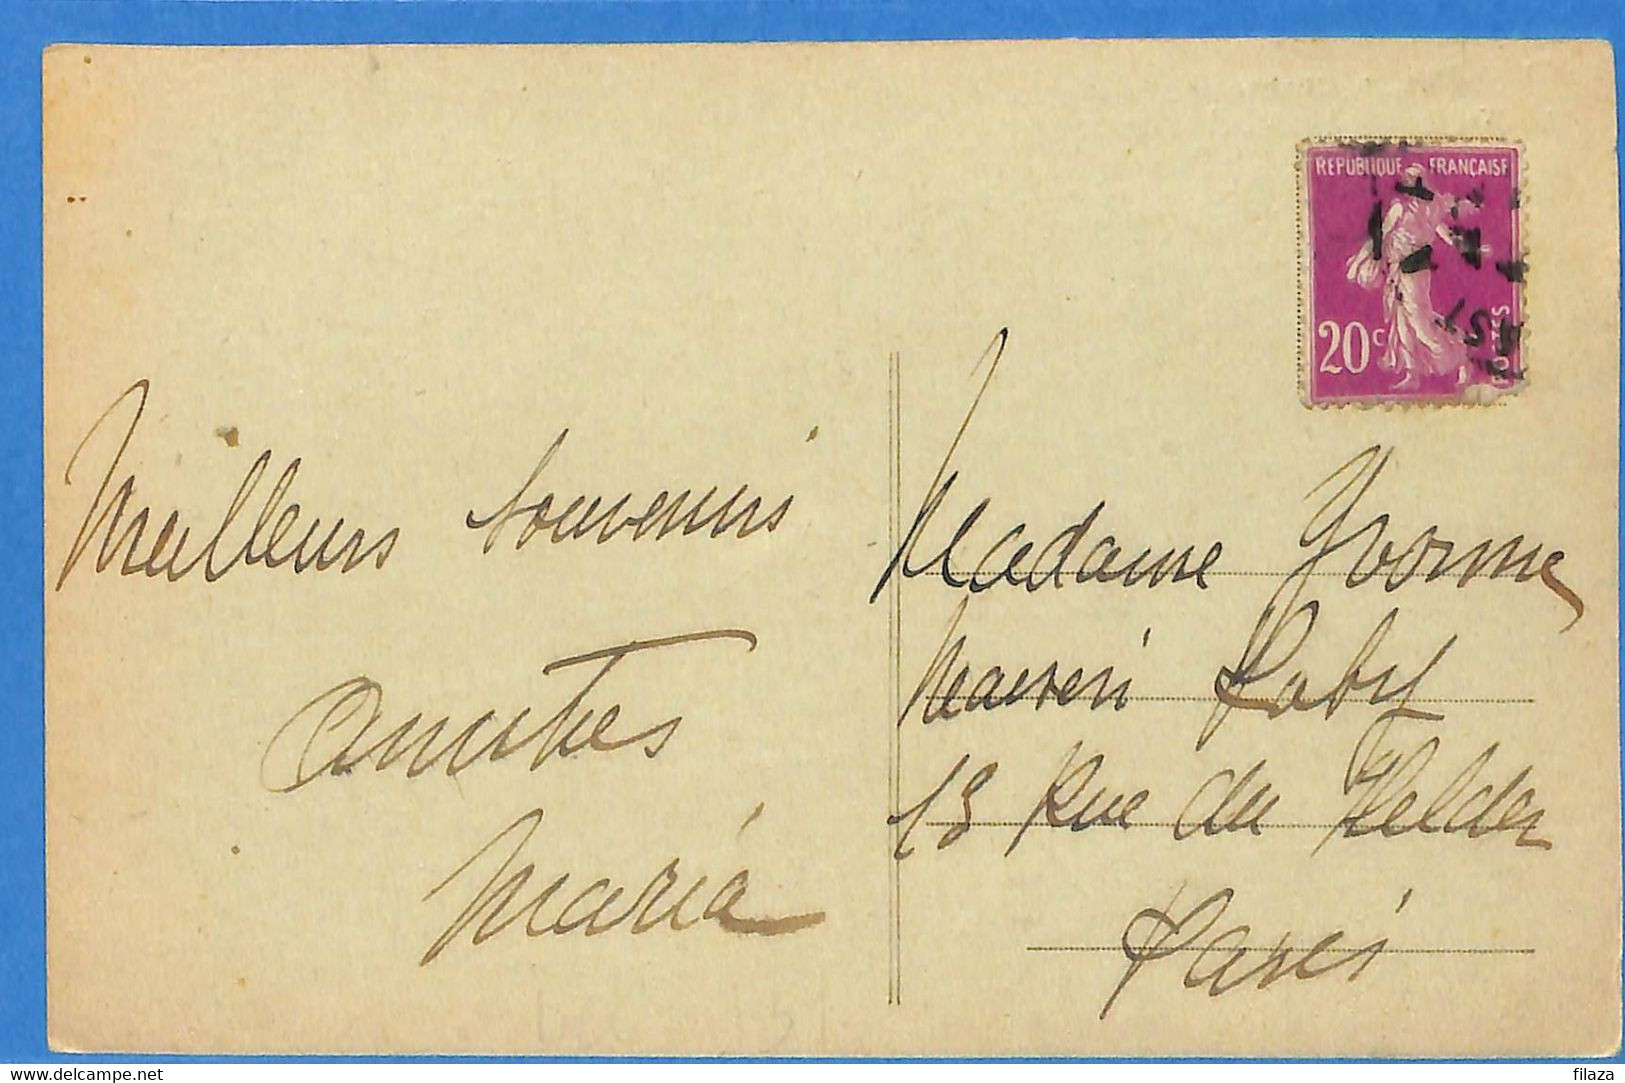 REPUBLIQUE FRANÇAISE
20c
POSTES
Meilleurs souvenirs
Amitiés
Maria
Madame Yvonne
13 Rue du Helder
Paris
www.delcampe.net
filaza